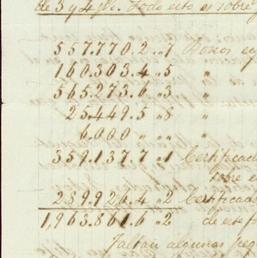 de 394 ps. Todo esto es sobre
557.770.2..7 Pesos
160.303.4..5 "
565.273.6..3 "
25.449.5..8 "
6.000 " .. " "
359.137.7..1 Certificad
sobre
289.926.4..2 Certificado
1,963.861.6..2 de
Faltan algunas